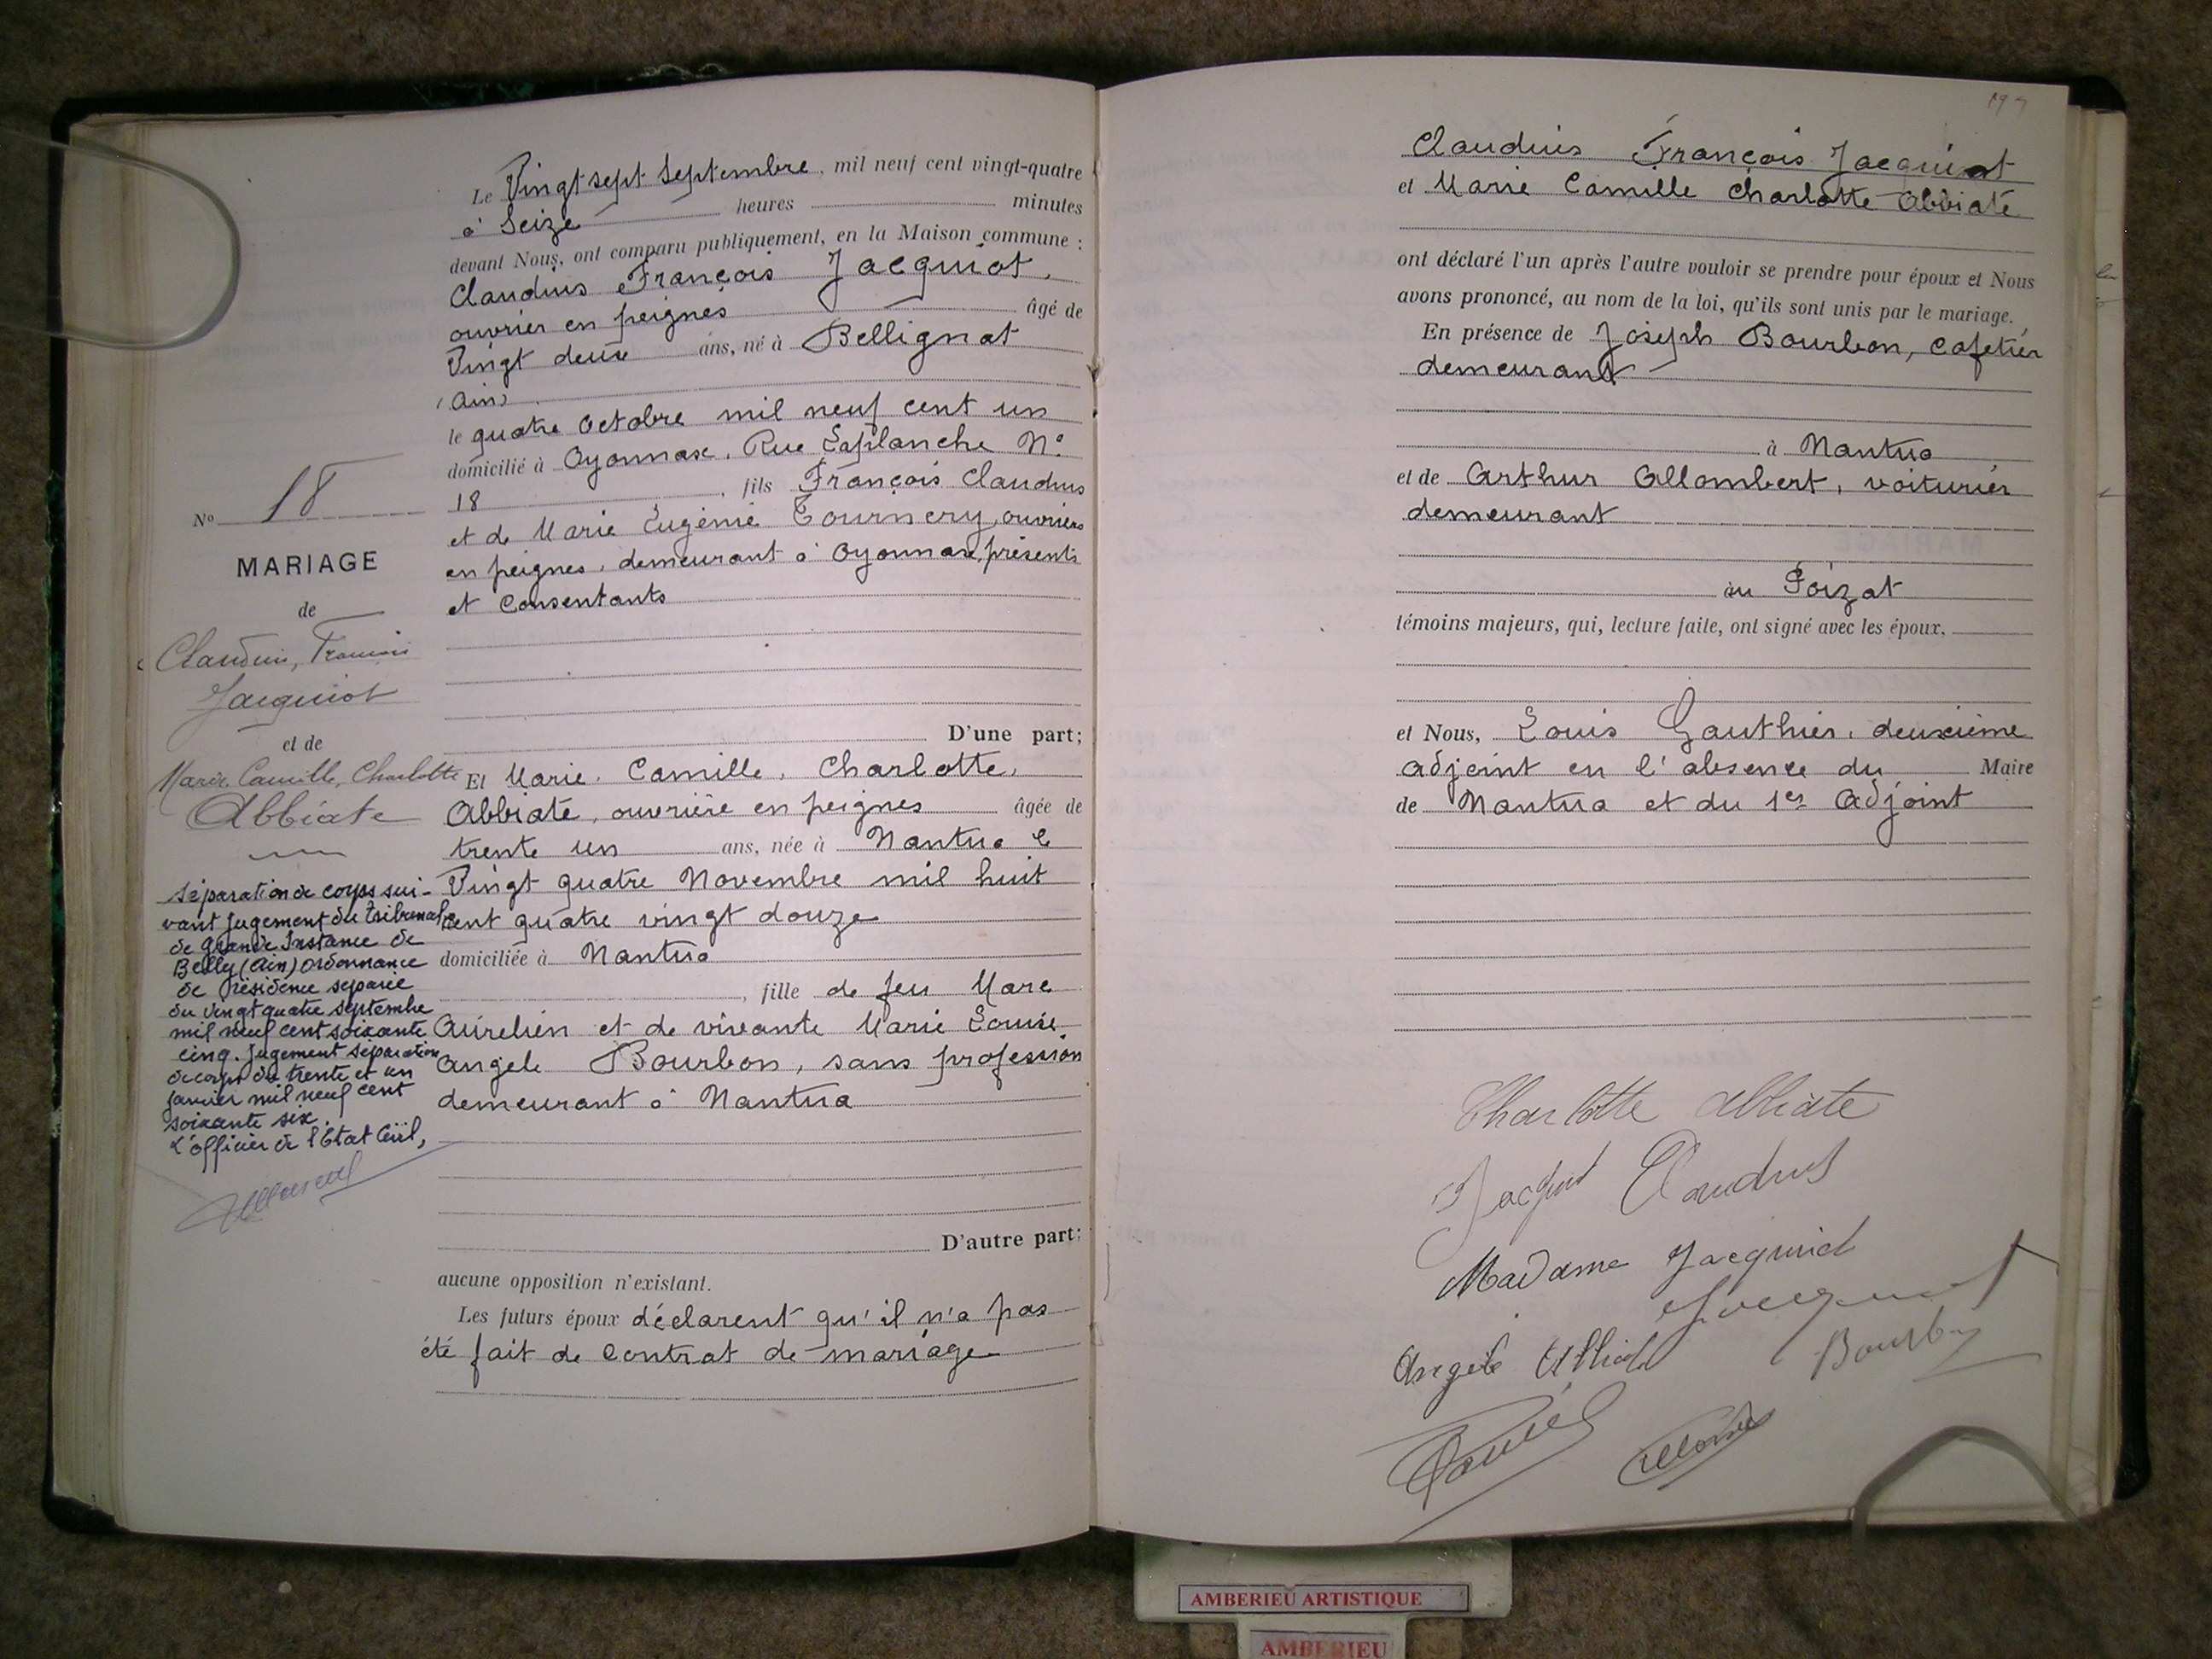 Le Vingt sept Septembre, mil neuf cent vingt-quatre
à Seize heures minutes
devant Nous, ont comparu publiquement, en la Maison commune :
Claudius François Jacquiot,
ouvrier en peignes âgé de
Vingt deux ans, né à Bellignat
(Ain)
le quatre Octobre mil neuf cent un
domicilié à Oyonnax, Rue Laplanche N°
18, fils François Claudius
et de Marie Eugénie Tournery, ouvriers
en peignes, demeurant à Oyonnax, présents
et Consentants
D'une part;
Et Marie, Camille, Charlotte,
Abbiate, ouvrière en peignes âgée de
trente un ans, née à Nantua le
Vingt quatre Novembre mil huit
cent quatre vingt douze
domiciliée à Nantua
, fille de feu Marc
Aurélien et de vivante Marie Louise
Angèle Bourbon, sans profession
demeurant à Nantua
D'autre part;
aucune opposition n'existant.
Les futurs époux déclarent qu'il n'a pas
été fait de Contrat de mariage
N° 18
MARIAGE
de
Claudius, François
Jacquiot
et de
Marie, Camille, Charlotte
Abbiate
Séparation de corps sui-
vant jugement du Tribunal
de Grande Instance de
Belley (Ain) Ordonnance
de Résidence séparée
du vingt quatre septembre
mil neuf cent soixante
cinq. Jugement séparation
de corps du trente et un
janvier mil neuf cent
soixante six.
L'officier de l'Etat Civil,
197
Claudius François Jacquiot
et Marie Camille Charlotte Abbiate
ont déclaré l'un après l'autre vouloir se prendre pour époux et Nous
avons prononcé, au nom de la loi, qu'ils sont unis par le mariage.
En présence de Joseph Bourbon, Cafetier
demeurant
à Nantua
et de Arthur Allombert, voiturier
demeurant
au Poizat
témoins majeurs, qui, lecture faite, ont signé avec les époux.
et Nous, Louis Gauthier, deuxième
Adjoint en l'absence du Maire
de Nantua et du 1er Adjoint
Charlotte Abbiate
Jacquiot Claudius
Madame Jacquiot
Jacquiot
Angèle Abbiate
Bourbon
AMBERIEU ARTISTIQUE
AMBERIEU